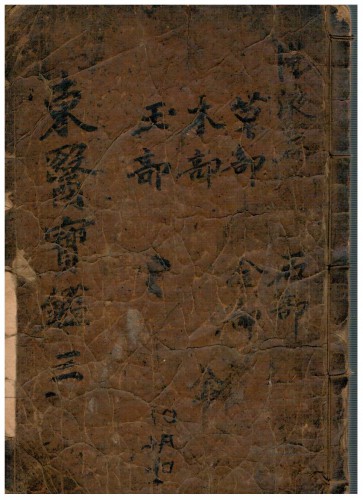 湯液篇 石部
草部 金部
木部
玉部
東醫寶鑑 三